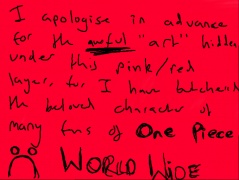 I apologise in advance
for the awful "art" hidden
under this pink/red
layer, for I have butchered
the beloved character of
many fans of One Piece
WORLD WIDE